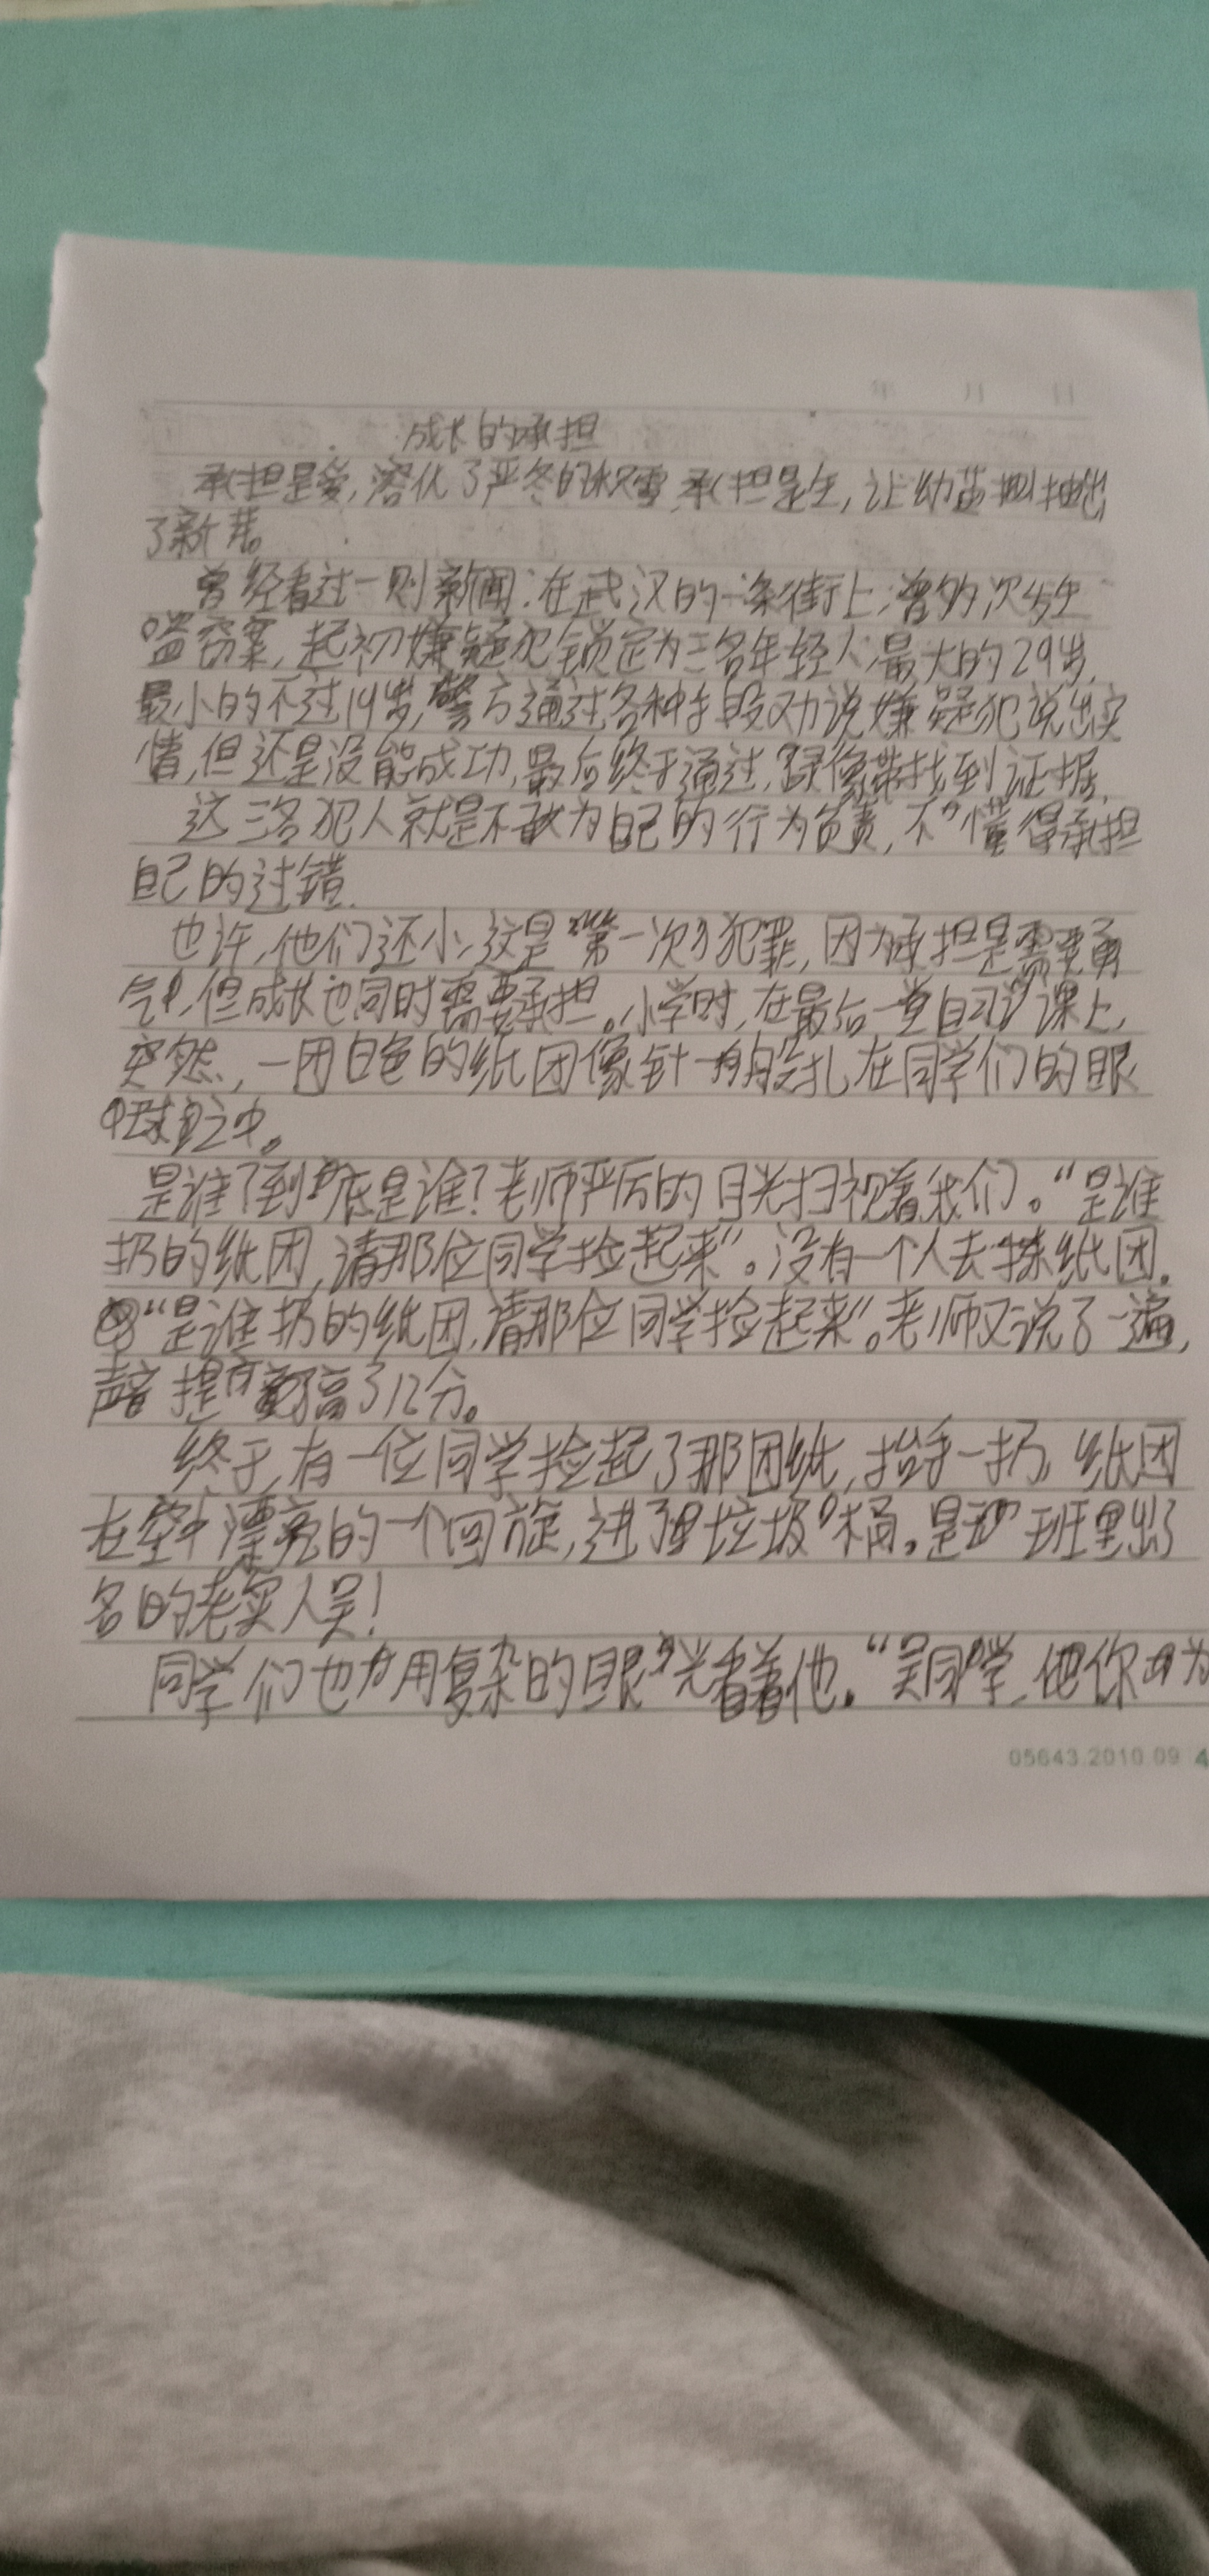 年 月 日
成长的承担
承担是爱,溶化了严冬的积雪,承担是生,让幼苗抽出
了新芽。
曾经看过一则新闻:在武汉的一条街上,曾多次发生
盗窃案,起初嫌疑犯锁定为三名年轻人,最大的29岁,
最小的不过19岁,警方通过各种手段劝说嫌疑犯说出实
情,但还是没能成功,最后终于通过,录像带找到证据.
这三名犯人就是不敢为自己的行为负责,不懂得承担
自己的过错.
也许,他们还小,这是第一次犯罪,因为承担是需要勇
气,但成长也同时需要承担。小学时,在最后一堂自习课上,
突然,一团白色的纸团像针一般扎在同学们的眼
球之中。
是谁?到底是谁?老师严厉的目光扫视着我们。“是谁
扔的纸团,请那位同学捡起来”。没有一个人去拣纸团.
“是谁扔的纸团,请那位同学捡起来”。老师又说了一遍,
声音提高了12分。
终于,有一位同学捡起了那团纸,抬手一扔,纸团
在空中漂亮的一个回旋,进了垃圾桶。是班里出了
名的老实人吴!
同学们也用复杂的眼光看着他.“吴同学,你为
05643.2010.09 4